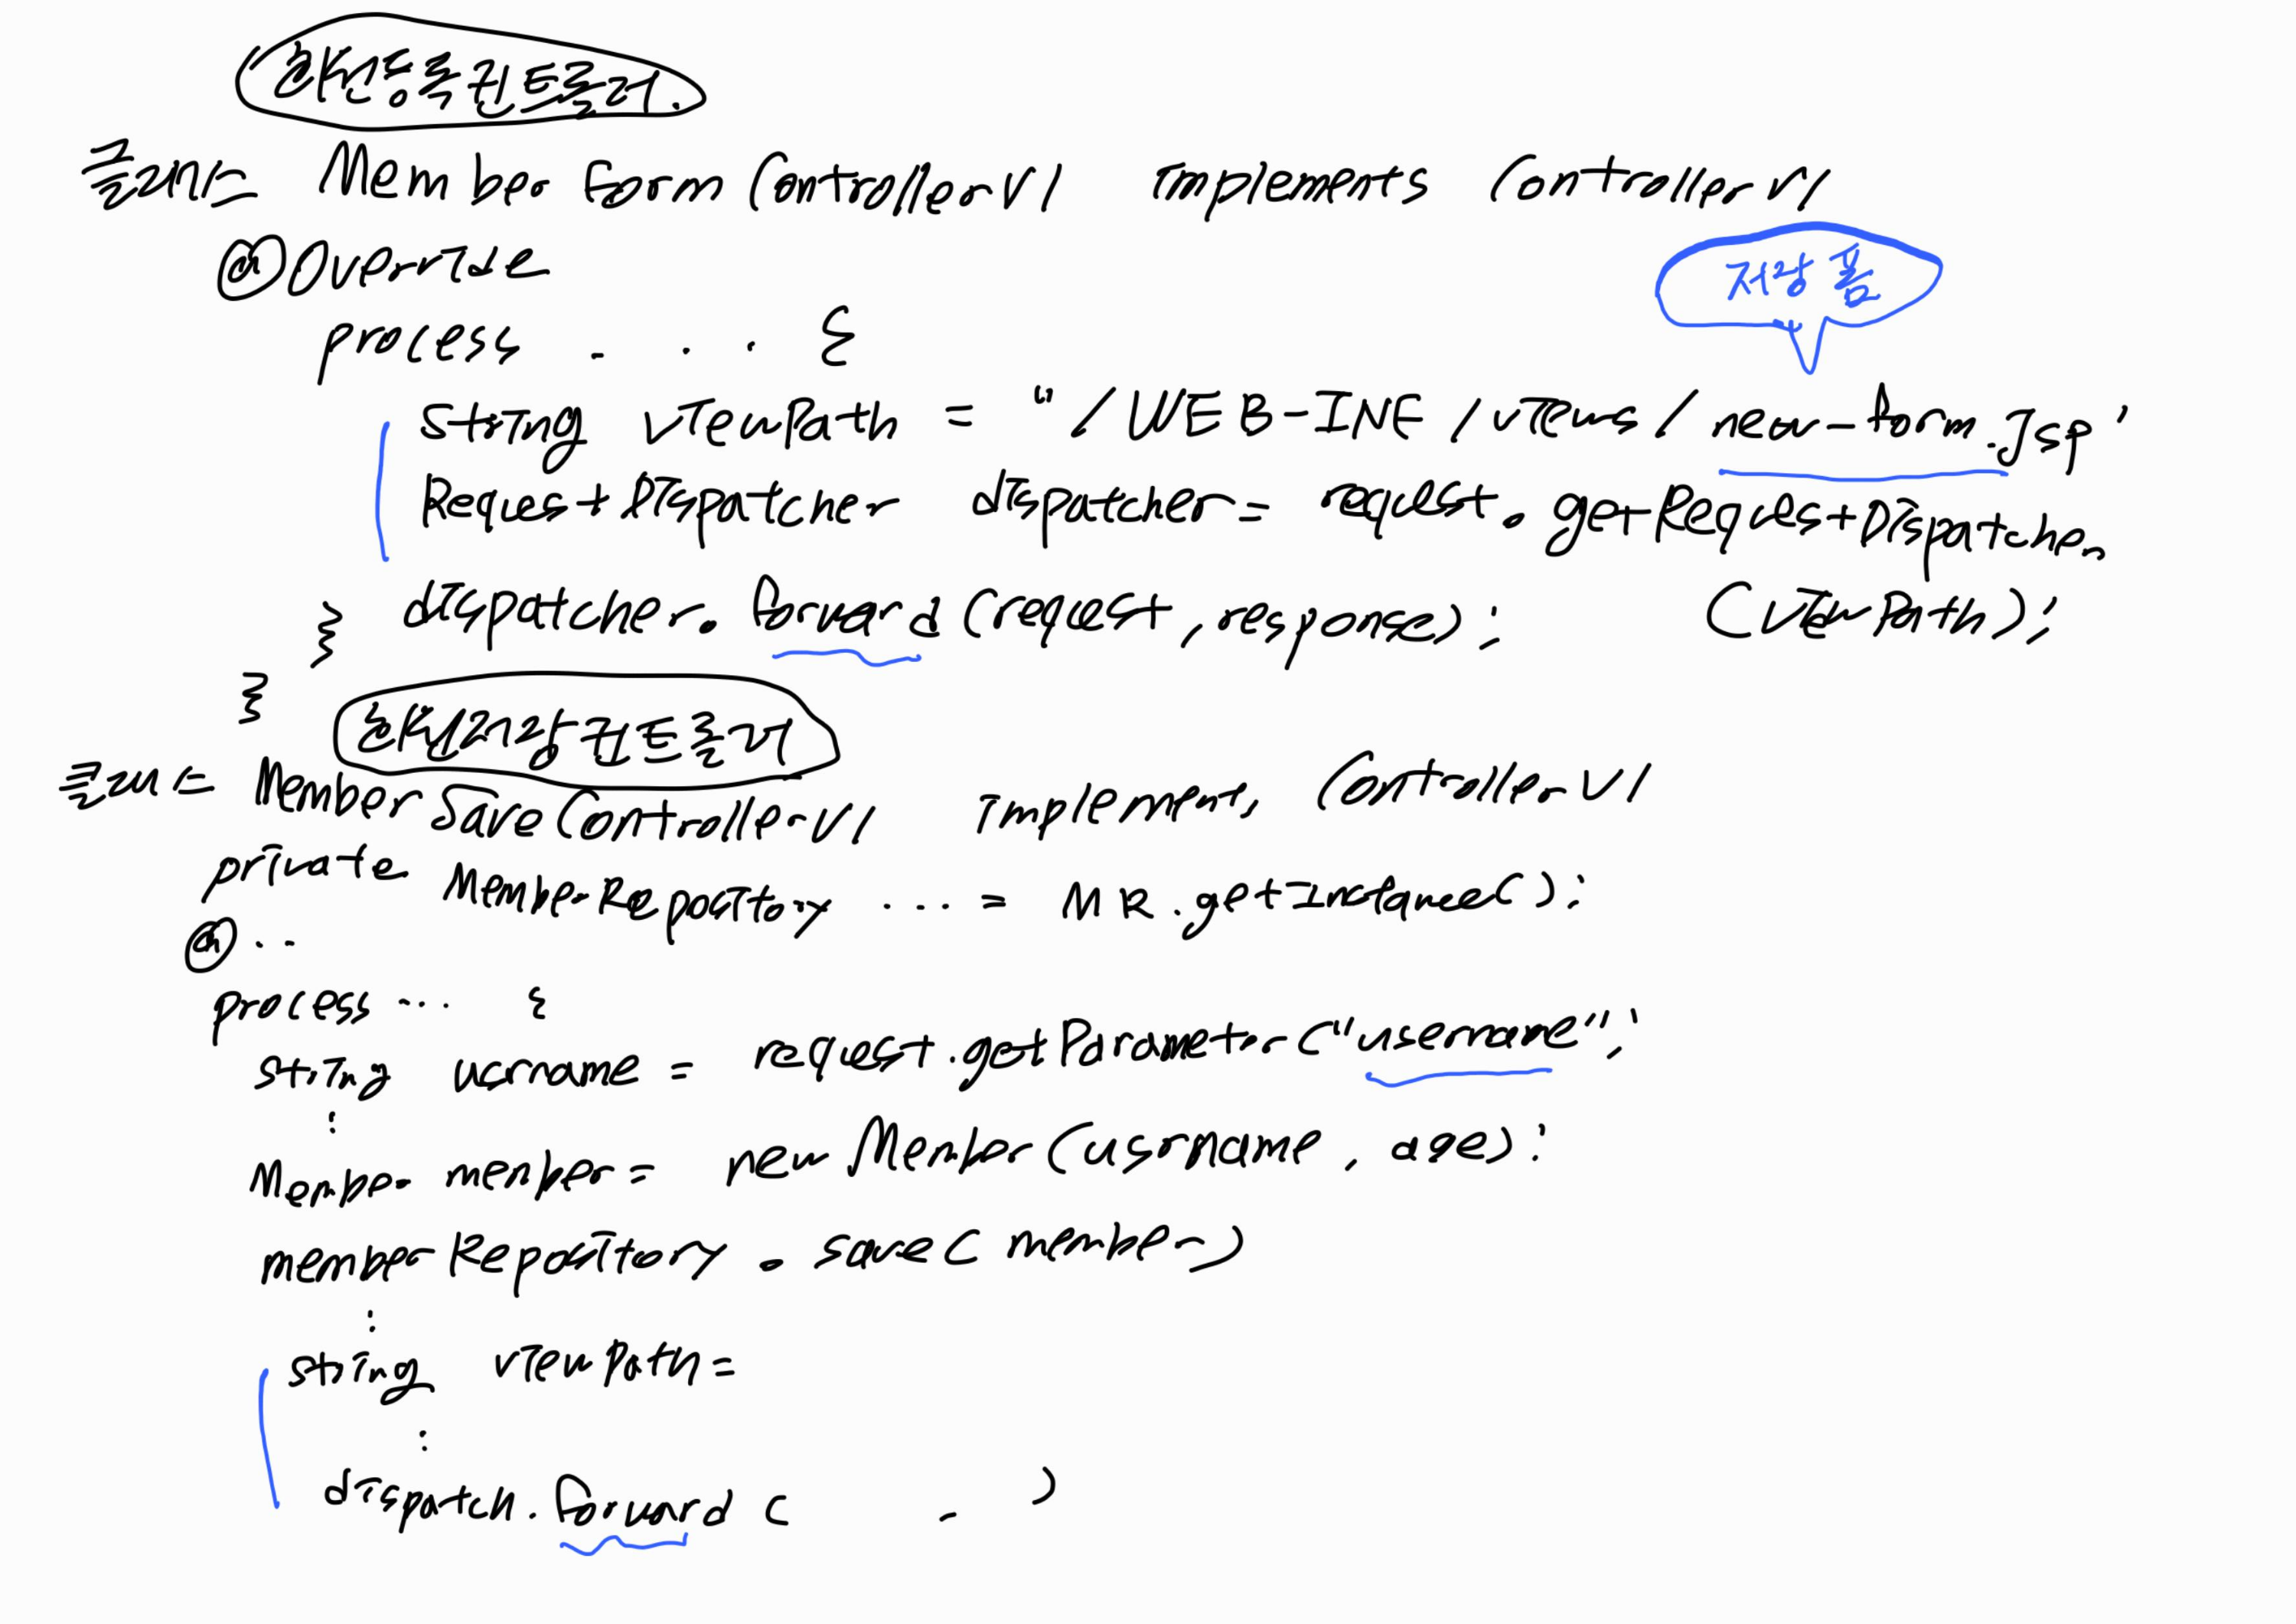 회원등록컨트롤러.
클래스 MemberFormControllerV1 implements ControllerV1
@Override
저장 폼
process . . . {
String viewPath = "/WEB-INF/views/new-form.jsp'
RequestDispatcher dispatcher = request.getRequestDispatcher
(viewPath);
} dispatcher.forward(request, response);
}
회원저장컨트롤러
클래스 MemberSaveControllerV1 implements ControllerV1
private MemberRepository ... = MR.getInstance();
@ ..
process ... {
String username = request.getParameter("username";
:
Member member = new Member(username, age);
memberRepository.save(member)
:
String viewPath =
:
dispatch.forward( , )